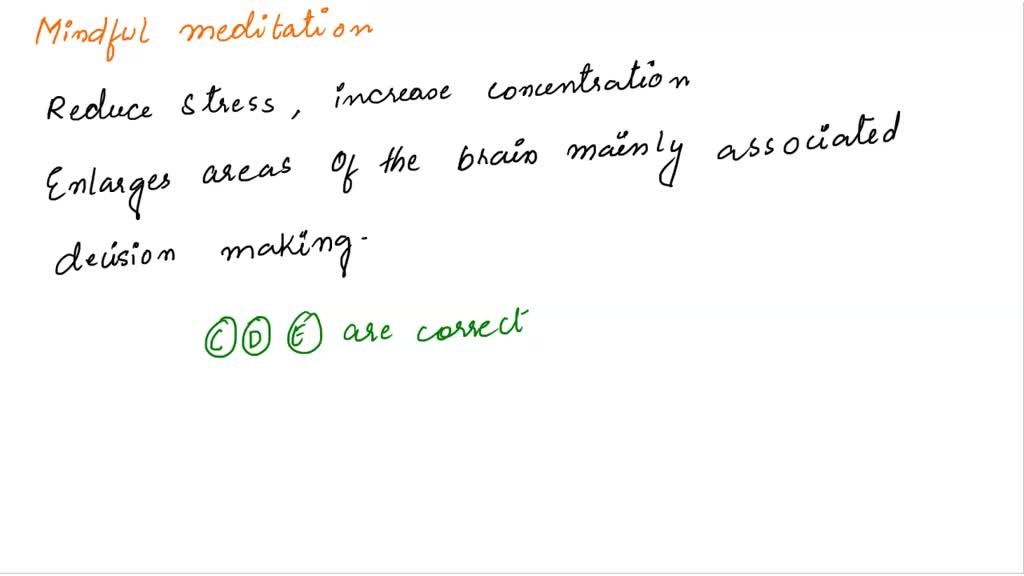 Mindful meditation
Reduce stress, increase concentration
Enlarges areas of the brain mainly associated
decision making.
C D E are correct